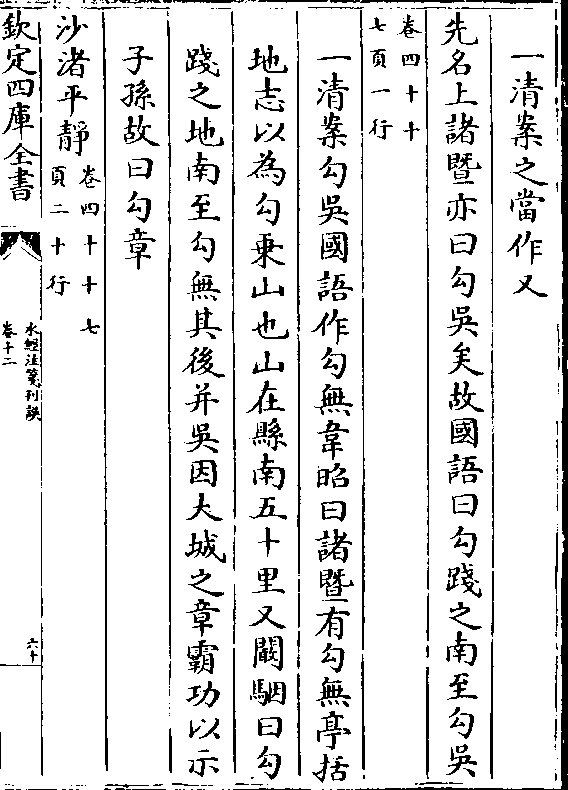 一清案之當作又
先名上諸暨亦曰勾吳矣故國語曰勾踐之南至勾吳
卷四十十
七頁一行
一清案勾吳國語作勾無韋昭曰諸暨有勾無亭括
地志以為勾乗山也山在縣南五十里又闞駰曰勾
踐之地南至勾無其後并吳因大城之章霸功以示
子孫故曰勾章
沙渚平靜卷四十十七
頁二十行
欽定四庫全書
水經注箋刊誤
卷十二
六十